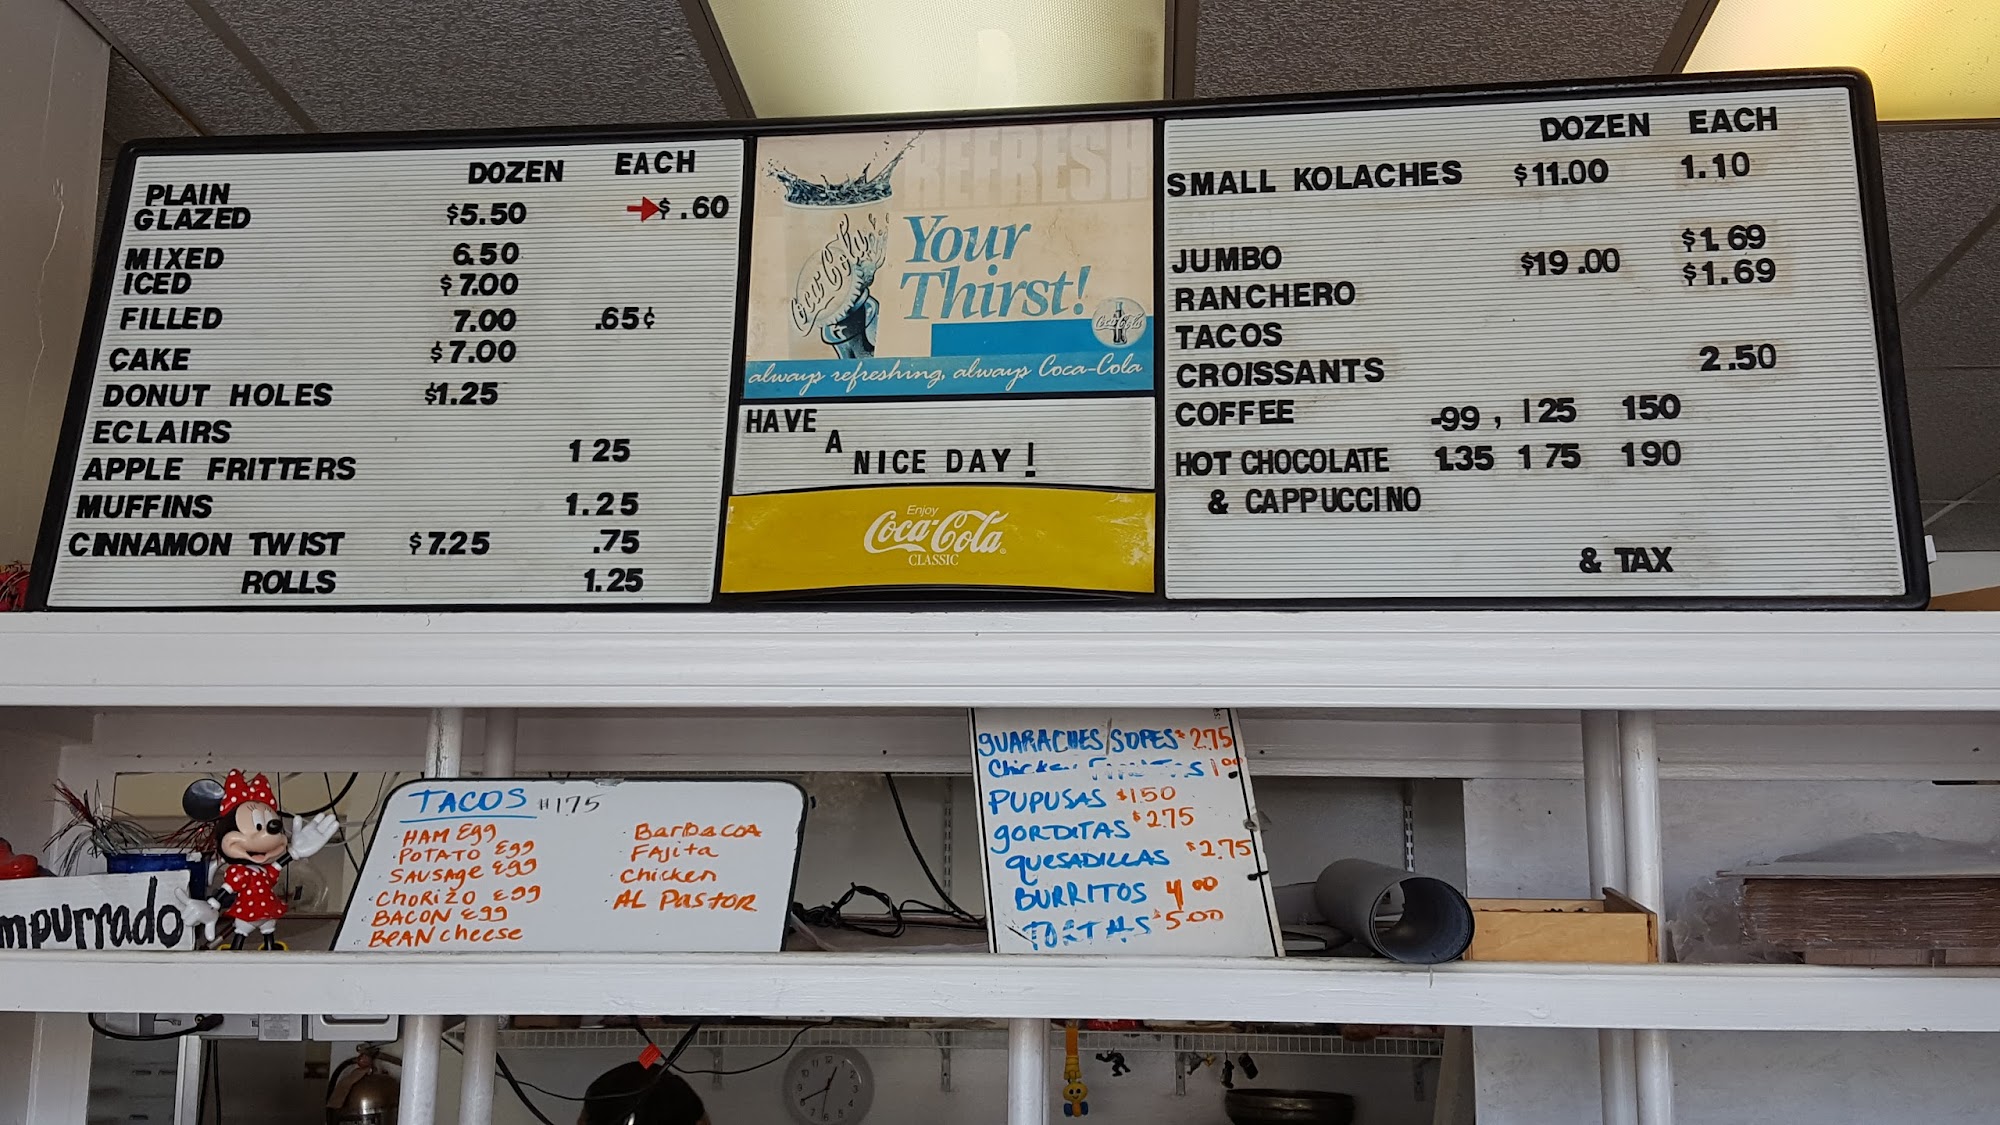 DOZEN EACH
PLAIN
GLAZED $5.50 $.60
MIXED 6.50
ICED $7.00
FILLED 7.00 .65¢
CAKE $7.00
DONUT HOLES $1.25
ECLAIRS
APPLE FRITTERS 1 25
MUFFINS 1.25
CINNAMON TWIST $7.25 .75
ROLLS 1.25
REFRESH
Your
Thirst!
Coca-Cola
Coca-Cola
always refreshing, always Coca-Cola
HAVE
A
NICE DAY!
Enjoy
Coca-Cola
CLASSIC
DOZEN EACH
SMALL KOLACHES $11.00 1.10
JUMBO $19.00 $1.69
RANCHERO $1.69
TACOS
CROISSANTS 2.50
COFFEE -99, 125 150
HOT CHOCOLATE 1.35 1 75 190
& CAPPUCCINO
& TAX
mpurrado
TACOS #175
HAM Egg
POTATO Egg
SAUSAge Egg
CHORIZO Egg
BACON Egg
BEAN cheese
BarBaCOA
FAjita
CHicken
AL PastOR
gUARACHES/SOPES $2.75
Chicken 1.00
PUPUSAS $1.50
gORDITAS $2.75
QUESADILLAS $2.75
BURRITOS 4.00
TORTAS $5.00